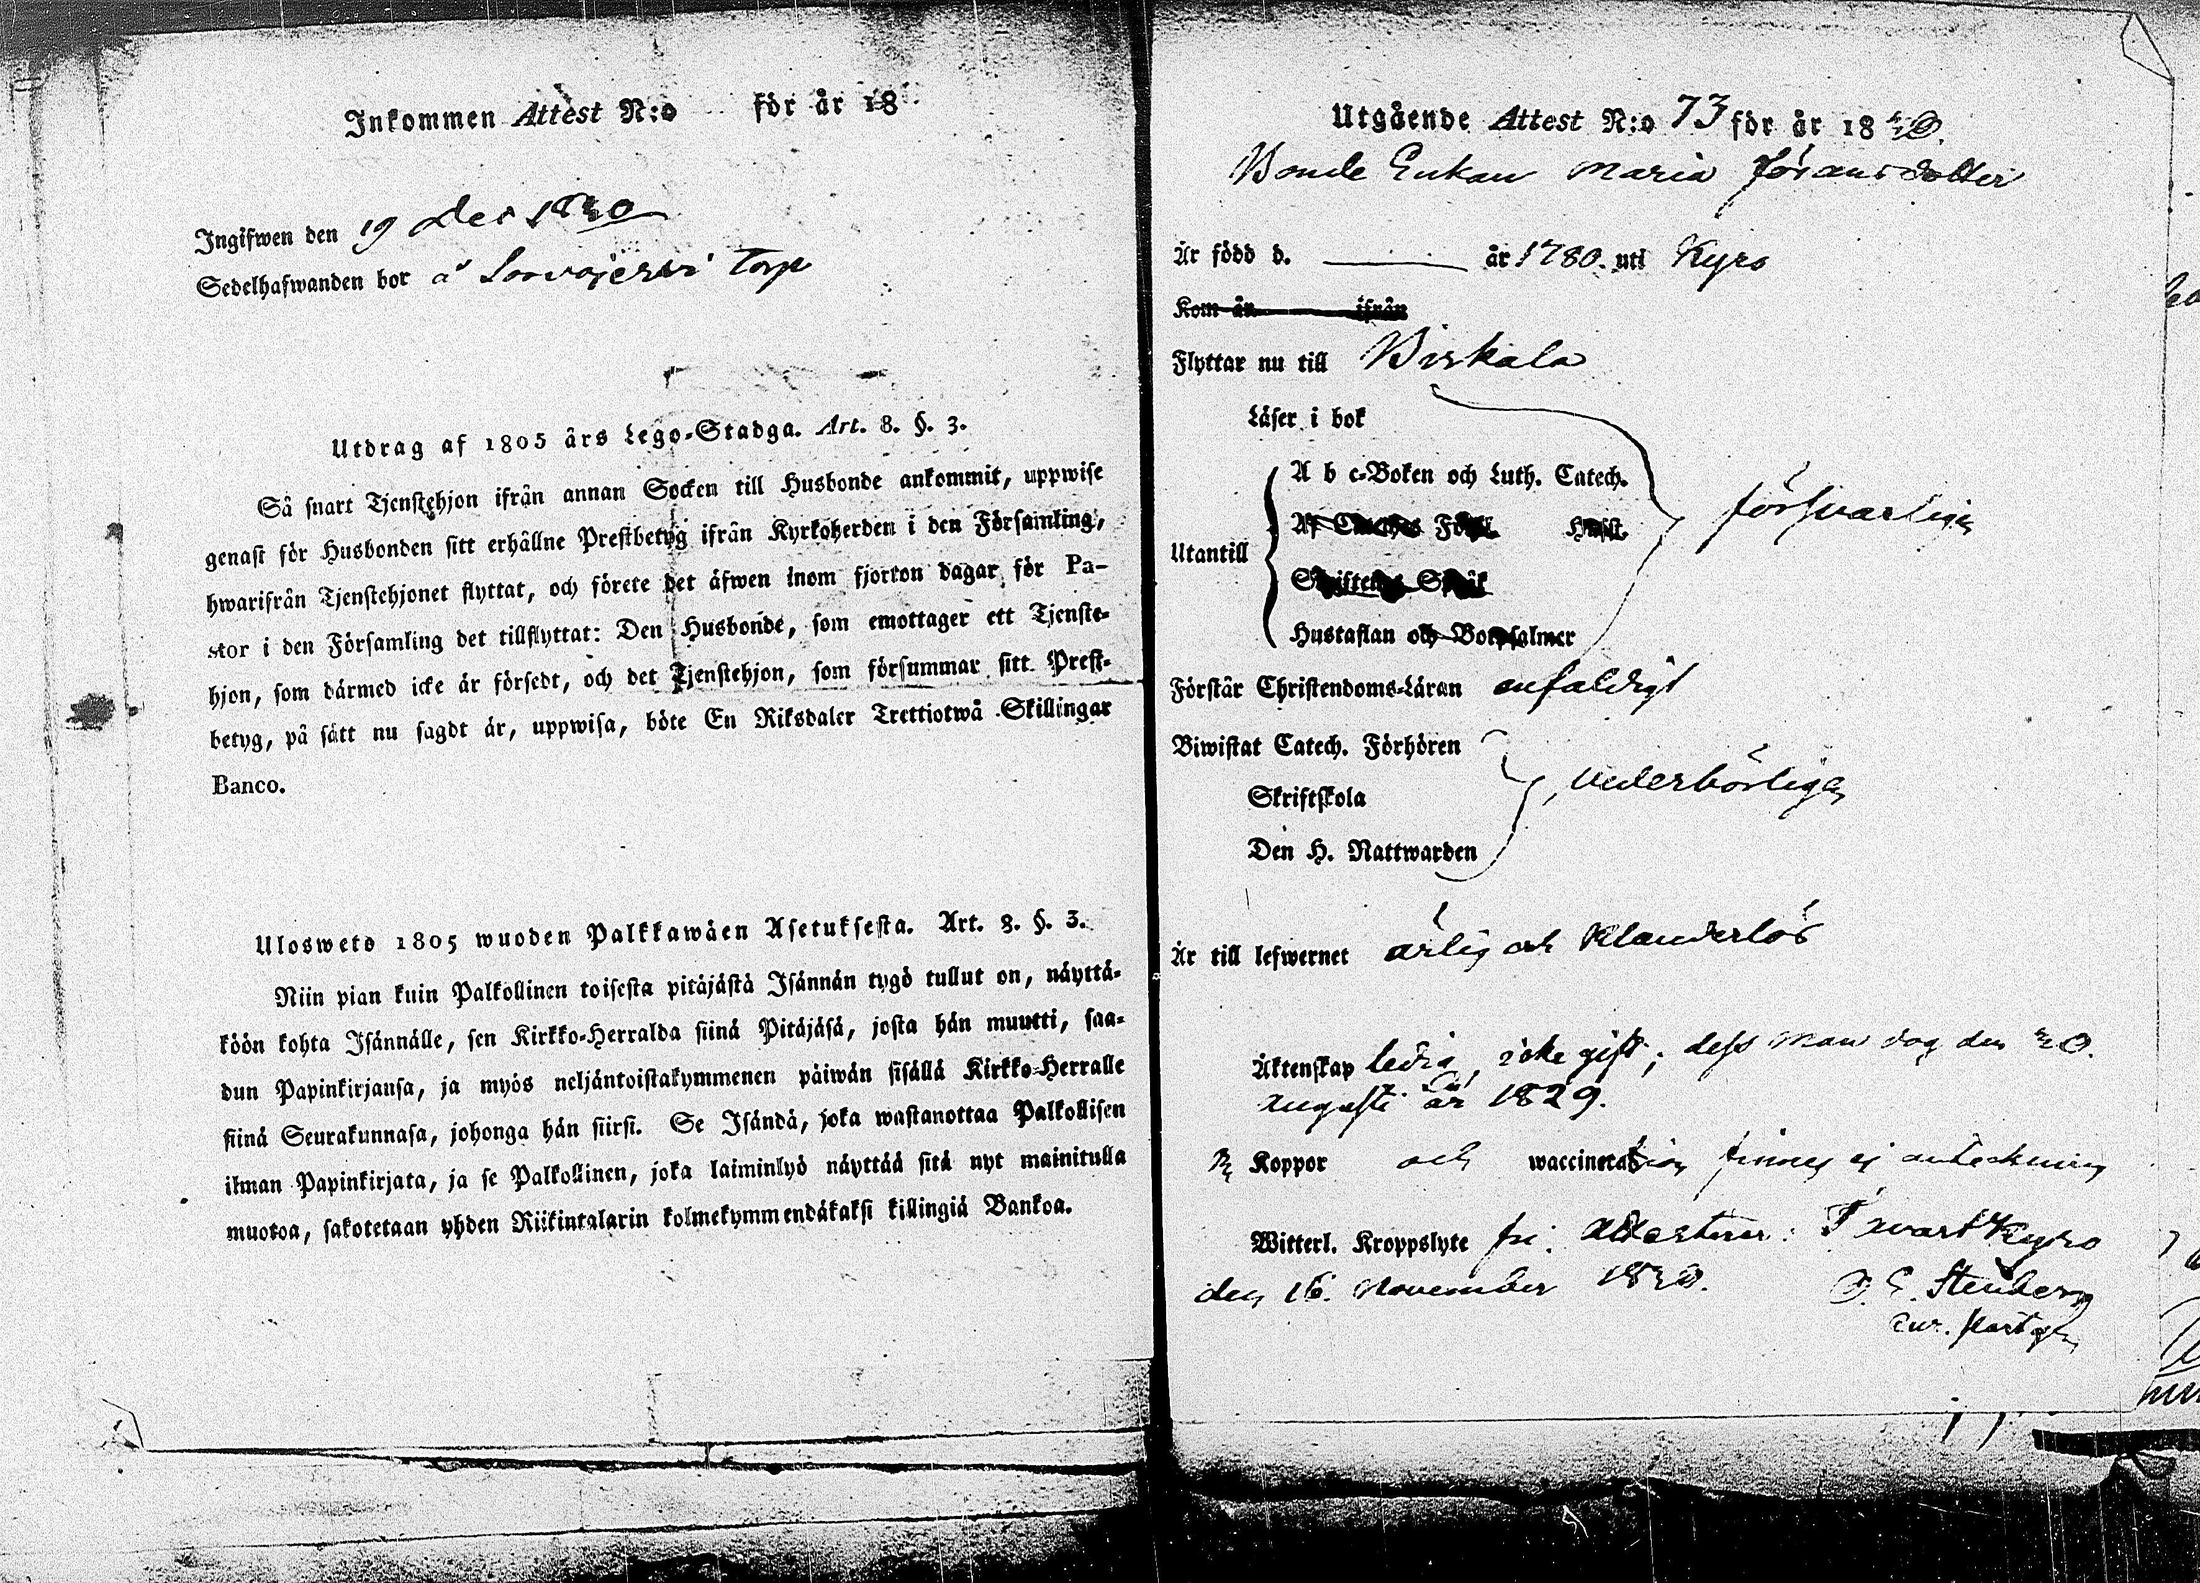 Inkommen Attest N:o för år 18
Ingifwen den 19 Dec 1830
Sedelhafwanden bor å Torp
Utdrag af 1805 års Lego-Stadga. Art. 8. §. 3.
Så snart Tjenstehjon ifrån annan Socken till Husbonde ankommit, uppwise
genast för Husbonden sitt erhållne Prestbetyg ifrån Kyrkoherden i den Församling,
hwarifrån Tjenstehjonet flyttat, och förete det äfwen inom fjorton dagar för Pa-
stor i den Församling det tillflyttat: Den Husbonde, som emottager ett Tjenste-
hjon, som därmed icke är försedt, och det Tjenstehjon, som försummar sitt Prest-
betyg, på sätt nu sagdt är, uppwisa, böte En Riksdaler Trettiotwå Skillingar
Banco.
Ulosweto 1805 wuoden Palkkawäen Asetuksesta. Art. 8. §. 3.
Niin pian kuin Palkollinen toisesta pitäjästä Isännän tygö tullut on, näyttä-
köön kohta Isännälle, sen Kirkko-Herralda siinä Pitäjäsä, josta hän muutti, saa-
dun Papinkirjansa, ja myös neljäntoistakymmenen päiwän sisällä Kirkko-Herralle
siinä Seurakunnasa, johonga hän siirsi. Se Isändä, joka wastanottaa Palkollisen
ilman Papinkirjata, ja se Palkollinen, joka laiminlyö näyttää sitä nyt mainitulla
muotoa, sakotetaan yhden Riikintalarin kolmekymmendäkaksi killingiä Bankoa.
Utgående Attest N:o 73 för år 1830.
Bonde Enkan Maria Jöransdotter
Är född d. år 1780. uti Kyro
Kom år ifrån
Flyttar nu till Birkala
Läser i bok
A b c-Boken och Luth. Catech. försvarligen
Utantill
Hustaflan och Botpsalmer
Förstår Christendoms-Läran enfaldigt
Biwistat Catech. Förhören
Skriftskola vederbörligen
Den H. Nattwarden
Är till lefwernet ärlig och Klanderlös
Äktenskap ledig, icke gift; dess man dog den 20.
Augusti år 1829.
Koppor och waccination finnes ej anteckning
Witterl. Kroppslyte fri. Attesterar: Tavast Kyro
den 16. November 1830. Stenberg